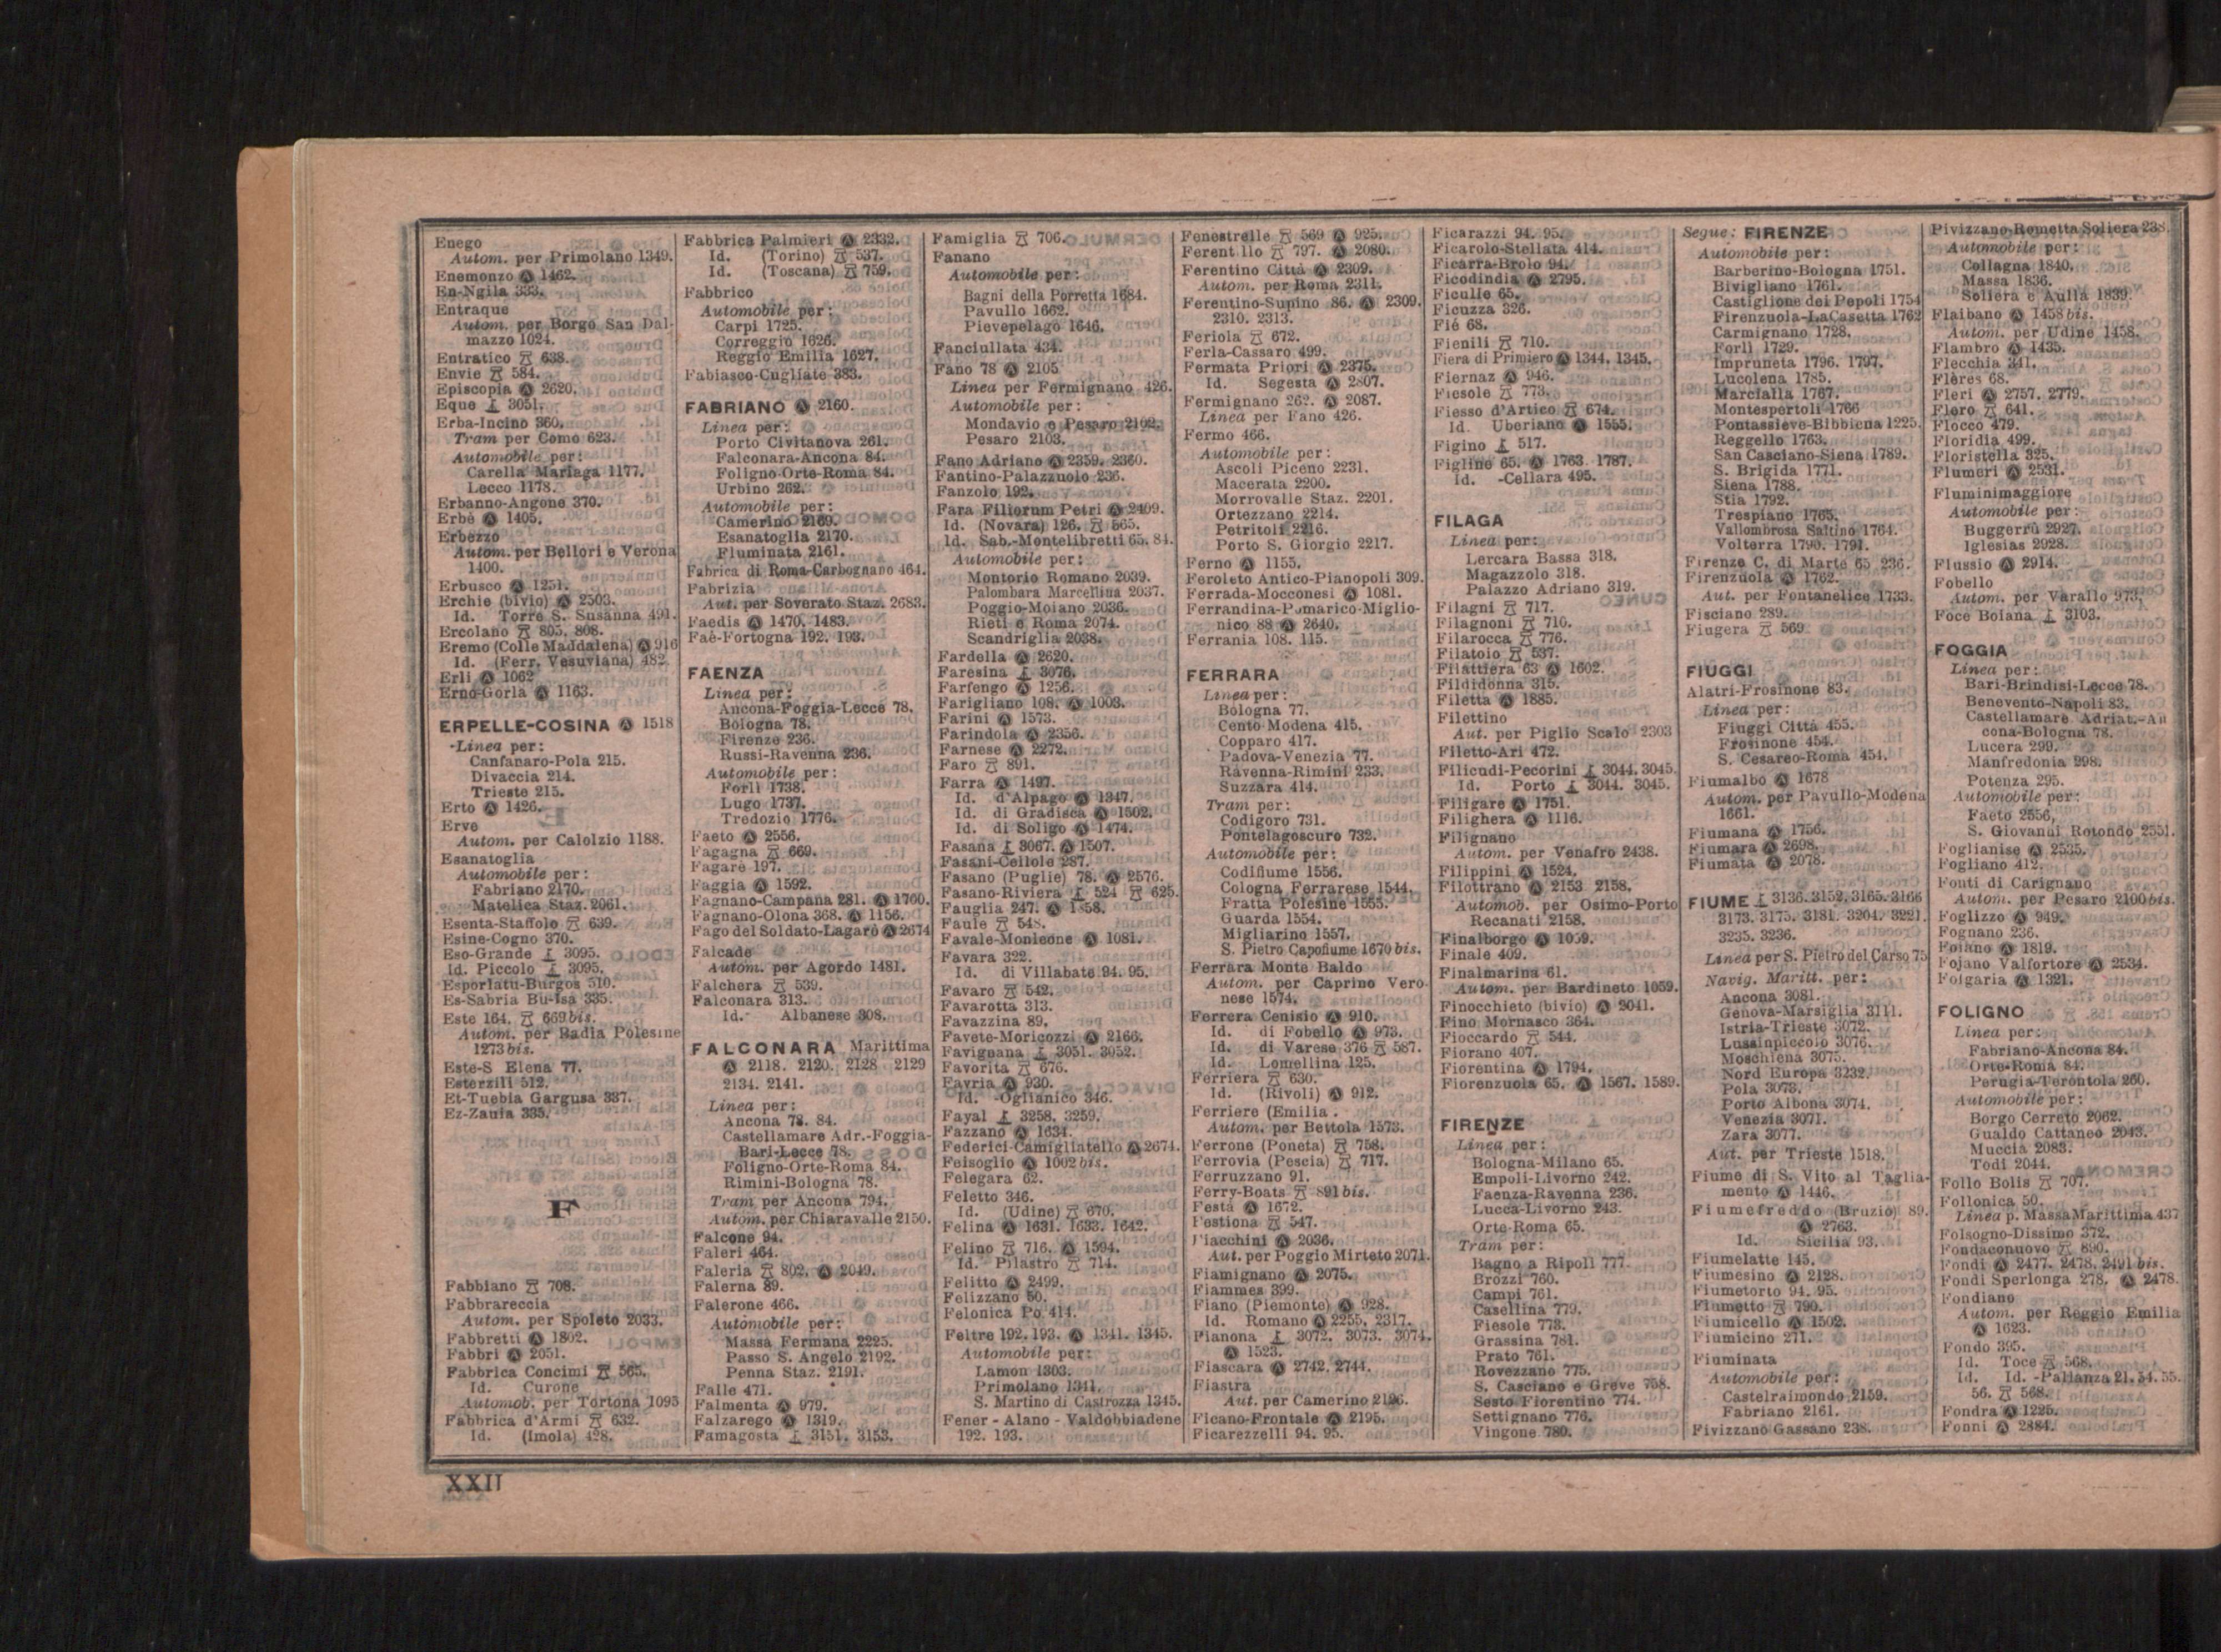 Enego
Autom. per Primolano 1349.
Enemonzo Ⓐ 1462.
En-Ngila 333.
Entraque
Autom. per Borgo San Dal-
mazzo 1024.
Entratico 638.
Envie 584.
Episcopia Ⓐ 2620.
Eque 3051.
Erba-Incino 360.
Tram per Como 623.
Automobile per:
Carella Mariaga 1177.
Lecco 1178.
Erbanno-Angone 370.
Erbè Ⓐ 1405.
Erbezzo
Autom. per Bellori e Verona
1400.
Erbusco Ⓐ 1251.
Erchie (bivio) Ⓐ 2503.
Id. Torre S. Susanna 491.
Ercolano 805. 808.
Eremo (Colle Maddalena) Ⓐ 916
Id. (Ferr. Vesuviana) 482.
Erli Ⓐ 1062
Erno-Gorla Ⓐ 1163.
ERPELLE-COSINA Ⓐ 1518
Linea per:
Canfanaro-Pola 215.
Divaccia 214.
Trieste 215.
Erto Ⓐ 1426.
Erve
Autom. per Calolzio 1188.
Esanatoglia
Automobile per:
Fabriano 2170.
Matelica Staz. 2061.
Esenta-Staffolo 639.
Esine-Cogno 370.
Eso-Grande 3095.
Id. Piccolo 3095.
Esporlatu-Burgos 510.
Es-Sabria Bu-Isa 335.
Este 164. 669 bis.
Autom. per Badia Polesine
1273 bis.
Este-S Elena 77.
Esterzili 512.
Et-Tuebia Gargusa 337.
Ez-Zauia 335.
F
Fabbiano 708.
Fabbrareccia
Autom. per Spoleto 2033.
Fabbretti Ⓐ 1802.
Fabbri Ⓐ 2051.
Fabbrica Concimi 565.
Id. Curone
Automob. per Tortona 1095
Fabbrica d'Armi 632.
Id. (Imola) 428.
Fabbrica Palmieri Ⓐ 2332.
Id. (Torino) 537.
Id. (Toscana) 759.
Fabbrico
Automobile per:
Carpi 1725.
Correggio 1626.
Reggio Emilia 1627.
Fabiasco-Cugliate 383.
FABRIANO Ⓐ 2160.
Linea per:
Porto Civitanova 261.
Falconara-Ancona 84.
Foligno-Orte-Roma 84.
Urbino 262.
Automobile per:
Camerino 2169.
Esanatoglia 2170.
Fluminata 2161.
Fabrica di Roma-Carbognano 464.
Fabrizia
Aut. per Soverato Staz. 2683.
Faedis Ⓐ 1470. 1483.
Faè-Fortogna 192. 193.
FAENZA
Linea per:
Ancona-Foggia-Lecce 78.
Bologna 78.
Firenze 236.
Russi-Ravenna 236.
Automobile per:
Forlì 1738.
Lugo 1737.
Tredozio 1776.
Faeto Ⓐ 2556.
Fagagna 669.
Fagarè 197.
Faggia Ⓐ 1592.
Fagnano-Campana 281. Ⓐ 1760.
Fagnano-Olona 368. Ⓐ 1156.
Fago del Soldato-Lagarò Ⓐ 2674
Falcade
Autom. per Agordo 1481.
Falchera 539.
Falconara 313.
Id. Albanese 308.
FALCONARA Marittima
Ⓐ 2118. 2120. 2128 2129
2134. 2141.
Linea per:
Ancona 78. 84.
Castellamare Adr.-Foggia-
Bari-Lecce 78.
Foligno-Orte-Roma 84.
Rimini-Bologna 78.
Tram per Ancona 794.
Autom. per Chiaravalle 2150.
Falcone 94.
Faleri 464.
Faleria 802. Ⓐ 2049.
Falerna 89.
Falerone 466.
Automobile per:
Massa Fermana 2225.
Passo S. Angelo 2192.
Penna Staz. 2191.
Falle 471.
Falmenta Ⓐ 979.
Falzarego Ⓐ 1319.
Famagosta 3151. 3153.
Famiglia 706.
Fanano
Automobile per:
Bagni della Porretta 1684.
Pavullo 1662.
Pievepelago 1646.
Fanciullata 434.
Fano 78 Ⓐ 2105
Linea per Fermignano 426.
Automobile per:
Mondavio e Pesaro 2102.
Pesaro 2103.
Fano Adriano Ⓐ 2359. 2360.
Fantino-Palazzuolo 236.
Fanzolo 192.
Fara Filiorum Petri Ⓐ 2409.
Id. (Novara) 126. 565.
Id. Sab.-Montelibretti 65. 84.
Automobile per:
Montorio Romano 2039.
Palombara Marcellina 2037.
Poggio-Moiano 2036.
Rieti e Roma 2074.
Scandriglia 2038.
Fardella Ⓐ 2620.
Faresina 3076.
Farfengo Ⓐ 1256.
Farigliano 108. Ⓐ 1003.
Farini Ⓐ 1573.
Farindola Ⓐ 2356.
Farnese Ⓐ 2272.
Faro 891.
Farra Ⓐ 1497.
Id. d'Alpago Ⓐ 1347.
Id. di Gradisca Ⓐ 1502.
Id. di Soligo Ⓐ 1474.
Fasana 3067. Ⓐ 1507.
Fasani-Cellole 287.
Fasano (Puglie) 78. Ⓐ 2576.
Fasano-Riviera 524 625.
Fauglia 247. Ⓐ 1858.
Faule 548.
Favale-Monleone Ⓐ 1081.
Favara 322.
Id. di Villabate 94. 95.
Favaro 542.
Favarotta 313.
Favazzina 89.
Favete-Moricozzi Ⓐ 2166.
Favignana 3051. 3052.
Favorita 676.
Favria Ⓐ 930.
Id. -Oglianico 346.
Fayal 3258. 3259.
Fazzano Ⓐ 1634.
Federici-Camigliatello Ⓐ 2674.
Feisoglio Ⓐ 1002 bis.
Felegara 62.
Feletto 346.
Id. (Udine) 670.
Felina Ⓐ 1631. 1633. 1642.
Felino 716. Ⓐ 1594.
Id. Pilastro 714.
Felitto Ⓐ 2499.
Felizzano 50.
Felonica Po 414.
Feltre 192. 193. Ⓐ 1341. 1345.
Automobile per:
Lamon 1303.
Primolano 1341.
S. Martino di Castrozza 1345.
Fener - Alano - Valdobbiadene
192. 193.
Fenestrelle 569 Ⓐ 925.
Ferentillo 797. Ⓐ 2080.
Ferentino Città Ⓐ 2309.
Autom. per Roma 2311.
Ferentino-Supino 86. Ⓐ 2309.
2310. 2313.
Feriola 672.
Ferla-Cassaro 499.
Fermata Priori Ⓐ 2375.
Id. Segesta Ⓐ 2807.
Fermignano 262. Ⓐ 2087.
Linea per Fano 426.
Fermo 466.
Automobile per:
Ascoli Piceno 2231.
Macerata 2200.
Morrovalle Staz. 2201.
Ortezzano 2214.
Petritoli 2216.
Porto S. Giorgio 2217.
Ferno Ⓐ 1155.
Feroleto Antico-Pianopoli 309.
Ferrada-Mocconesi Ⓐ 1081.
Ferrandina-Pomarico-Miglio-
nico 88 Ⓐ 2640.
Ferrania 108. 115.
FERRARA
Linea per:
Bologna 77.
Cento Modena 415.
Copparo 417.
Padova-Venezia 77.
Ravenna-Rimini 233.
Suzzara 414.
Tram per:
Codigoro 731.
Pontelagoscuro 732.
Automobile per:
Codifiume 1556.
Cologna Ferrarese 1544.
Fratta Polesine 1555.
Guarda 1554.
Migliarino 1557.
S. Pietro Capofiume 1670 bis.
Ferrara Monte Baldo
Autom. per Caprino Vero
nese 1574.
Ferrera Cenisio Ⓐ 910.
Id. di Fobello Ⓐ 973.
Id. di Varese 376 587.
Id. Lomellina 125.
Ferriera 630.
Id. (Rivoli) Ⓐ 912.
Ferriere (Emilia .
Autom. per Bettola 1573.
Ferrone (Poneta) 758.
Ferrovia (Pescia) 717.
Ferruzzano 91.
Ferry-Boats 891 bis.
Festà Ⓐ 1672.
Festiona 547.
Fiacchini Ⓐ 2036.
Aut. per Poggio Mirteto 2071.
Fiamignano Ⓐ 2075.
Fiammes 399.
Fiano (Piemonte) Ⓐ 928.
Id. Romano Ⓐ 2255. 2317.
Fianona 3072. 3073. 3074.
Ⓐ 1523.
Fiascara Ⓐ 2742. 2744.
Fiastra
Aut. per Camerino 2196.
Ficano-Frontale Ⓐ 2195.
Ficarezzelli 94. 95.
Ficarazzi 94. 95.
Ficarolo-Stellata 414.
Ficarra-Brolo 94.
Ficodindia Ⓐ 2795.
Ficulle 65.
Ficuzza 326.
Fié 68.
Fienili 710.
Fiera di Primiero Ⓐ 1344. 1345.
Fiernaz Ⓐ 946.
Fiesole 773.
Fiesso d'Artico 674.
Id. Uberiano Ⓐ 1555.
Figino 517.
Figline 65. Ⓐ 1763. 1787.
Id. -Cellara 495.
FILAGA
Linea per:
Lercara Bassa 318.
Magazzolo 318.
Palazzo Adriano 319.
Filagni 717.
Filagnoni 710.
Filarocca 776.
Filatoio 537.
Filattiera 63 Ⓐ 1602.
Fildidonna 315.
Filetta Ⓐ 1885.
Filettino
Aut. per Piglio Scalo 2303
Filetto-Ari 472.
Filicudi-Pecorini 3044. 3045.
Id. Porto 3044. 3045.
Filigare Ⓐ 1751.
Filighera Ⓐ 1116.
Filignano
Autom. per Venafro 2438.
Filippini Ⓐ 1524.
Filottrano Ⓐ 2153 2158.
Automob. per Osimo-Porto
Recanati 2158.
Finalborgo Ⓐ 1059.
Finale 409.
Finalmarina 61.
Autom. per Bardineto 1059.
Finocchieto (bivio) Ⓐ 2041.
Fino Mornasco 364.
Fioccardo 544.
Fiorano 407.
Fiorentina Ⓐ 1794.
Fiorenzuola 65. Ⓐ 1567. 1589.
FIRENZE
Linea per:
Bologna-Milano 65.
Empoli-Livorno 242.
Faenza-Ravenna 236.
Lucca-Livorno 243.
Orte-Roma 65.
Tram per:
Bagno a Ripoli 777.
Brozzi 760.
Campi 761.
Casellina 779.
Fiesole 773.
Grassina 781.
Prato 761.
Rovezzano 775.
S. Casciano e Greve 758.
Sesto Fiorentino 774.
Settignano 776.
Vingone 780.
Segue: FIRENZE
Automobile per:
Barberino-Bologna 1751.
Bivigliano 1761.
Castiglione dei Pepoli 1754
Firenzuola-LaCasetta 1762
Carmignano 1728.
Forlì 1729.
Impruneta 1796. 1797.
Lucolena 1785.
Marcialla 1767.
Montespertoli 1766
Pontassieve-Bibbiena 1225.
Reggello 1763.
San Casciano-Siena 1789.
S. Brigida 1771.
Siena 1788.
Stia 1792.
Trespiano 1765.
Vallombrosa Saltino 1764.
Volterra 1790. 1791.
Firenze C. di Marte 65 236.
Firenzuola Ⓐ 1762.
Aut. per Fontanelice 1733.
Fisciano 289.
Fiugera 569
FIUGGI
Alatri-Frosinone 83.
Linea per:
Fiuggi Città 455.
Frosinone 454.
S. Cesareo-Roma 454.
Fiumalbo Ⓐ 1678
Autom. per Pavullo-Modena
1661.
Fiumana Ⓐ 1756.
Fiumara Ⓐ 2698.
Fiumata Ⓐ 2078.
FIUME 3136. 3152. 3165. 3166
3173. 3175. 3181. 3204. 3221.
3235. 3236.
Linea per S. Pietro del Carso 75
Navig. Maritt. per:
Ancona 3081.
Genova-Marsiglia 3111.
Istria-Trieste 3072.
Lussinpiccolo 3076.
Moschiena 3075.
Nord Europa 3232.
Pola 3073.
Porto Albona 3074.
Venezia 3071.
Zara 3077.
Aut. per Trieste 1518.
Fiume di S. Vito al Taglia-
mento Ⓐ 1446.
Fiumefreddo (Bruzio) 89.
Ⓐ 2763.
Id. Sicilia 93.
Fiumelatte 145.
Fiumesino Ⓐ 2128.
Fiumetorto 94. 95.
Fiumetto 790.
Fiumicello Ⓐ 1502.
Fiumicino 271.
Fiuminata
Automobile per:
Castelraimondo 2159.
Fabriano 2161.
Fivizzano Gassano 238.
Fivizzano-Rometta Soliera 238.
Automobile per:
Collagna 1840.
Massa 1836.
Soliera e Aulla 1839.
Flaibano Ⓐ 1458 bis.
Autom. per Udine 1458.
Flambro Ⓐ 1435.
Flecchia 341.
Flères 68.
Fleri Ⓐ 2757. 2779.
Flero 641.
Flocco 479.
Floridia 499.
Floristella 325.
Flumeri Ⓐ 2531.
Fluminimaggiore
Automobile per:
Buggerrù 2927.
Iglesias 2928.
Flussio Ⓐ 2914.
Fobello
Autom. per Varallo 973.
Foce Boiana 3103.
FOGGIA
Linea per:
Bari-Brindisi-Lecce 78.
Benevento-Napoli 83.
Castellamare Adriat.-An
cona-Bologna 78.
Lucera 299.
Manfredonia 298.
Potenza 295.
Automobile per:
Faeto 2556.
S. Giovanni Rotondo 2551.
Foglianise Ⓐ 2535.
Fogliano 412.
Fonti di Carignano
Autom. per Pesaro 2100 bis.
Foglizzo Ⓐ 949.
Fognano 236.
Foiano Ⓐ 1819.
Fojano Valfortore Ⓐ 2534.
Folgaria Ⓐ 1321.
FOLIGNO
Linea per:
Fabriano-Ancona 84.
Orte-Roma 84.
Perugia-Terontola 260.
Automobile per:
Borgo Cerreto 2062.
Gualdo Cattaneo 2043.
Muccia 2083.
Todi 2044.
Follo Bolis 707.
Follonica 50.
Linea p. Massa Marittima 437
Folsogno-Dissimo 372.
Fondaconuovo 890.
Fondi Ⓐ 2477. 2478. 2491 bis.
Fondi Sperlonga 278. Ⓐ 2478.
Fondiano
Autom. per Reggio Emilia
Ⓐ 1623.
Fondo 395.
Id. Toce 568.
Id. Id. -Pallanza 21. 54. 55.
56. 568.
Fondra Ⓐ 1225.
Fonni Ⓐ 2884.
XXII